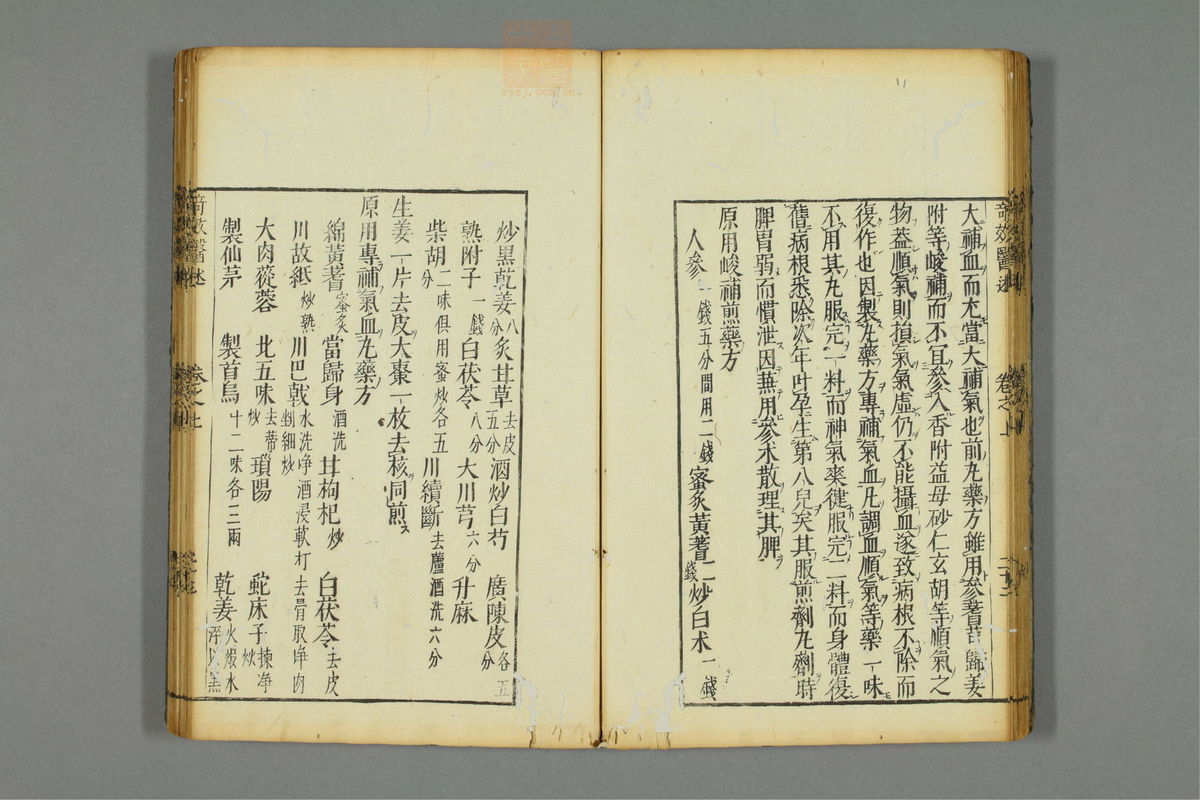 大補血而尤當大補氣也前丸藥方雖用參蓍苓歸姜
附等峻補而不宜參入香附益母砂仁玄胡等順氣之
物蓋順氣則損氣氣虛仍不能攝血遂致病根不除而
復作也因製丸藥方專補氣血凡調血順氣等藥一味
不用其丸服完一料而神氣爽健服完二料而身體復
舊病根悉除次年叶孕生第八兒矣其服煎劑丸劑時
脾胃弱而慣泄因兼用參朮散理其脾
原用峻補煎藥方
人參二錢五分間用二錢 蜜炙黃蓍二錢 炒白朮一錢
奇效醫述 卷之上
炒黑乾姜八分 炙甘草去皮五分 酒炒白芍 廣陳皮各五分
熟附子一錢 白茯苓八分 大川芎六分 升麻
柴胡二味俱用蜜炒各五分 川續斷去蘆酒洗六分
生姜一片去皮大棗一枚去核同煎
原用專補氣血丸藥方
綿黃蓍蜜炙 當歸身酒洗 甘枸杞炒 白茯苓去皮
川故紙炒熟 川巴戟水洗淨酒浸軟打去骨取淨肉剉細炒
大肉蓯蓉 北五味去蒂炒 瑣陽 蛇床子揀淨炒
製仙茅 製首烏十二味各三兩 乾姜火煅水淬以黑